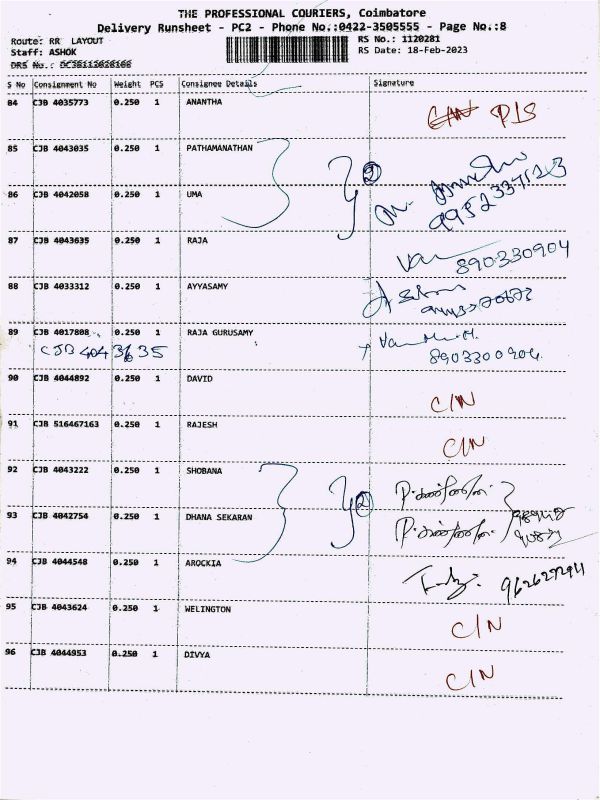 THE PROFESSIONAL COURIERS, Coimbatore
Delivery Runsheet - PC2 - Phone No.:0422-3505555 - Page No.:8
Route: RR LAYOUT
RS No.: 1120281
Staff: ASHOK
RS Date: 18-Feb-2023
DRS No.:
S No Consignment No Weight PCS Consignee Details Signature
84 CJB 4035773 0.250 1 ANANTHA C/N P/S
85 CJB 4043035 0.250 1 PATHAMANATHAN
86 CJB 4042058 0.250 1 UMA
87 CJB 4043635 0.250 1 RAJA 890330904
88 CJB 4033312 0.250 1 AYYASAMY
89 CJB 4017808 0.250 1 RAJA GURUSAMY
CJB 4043635 8903300904
90 CJB 4044892 0.250 1 DAVID C/N
91 CJB 516467163 0.250 1 RAJESH C/N
92 CJB 4043222 0.250 1 SHOBANA
93 CJB 4042754 0.250 1 DHANA SEKARAN
94 CJB 4044548 0.250 1 AROCKIA 9626272941
95 CJB 4043624 0.250 1 WELINGTON C/N
96 CJB 4044953 0.250 1 DIVYA C/N